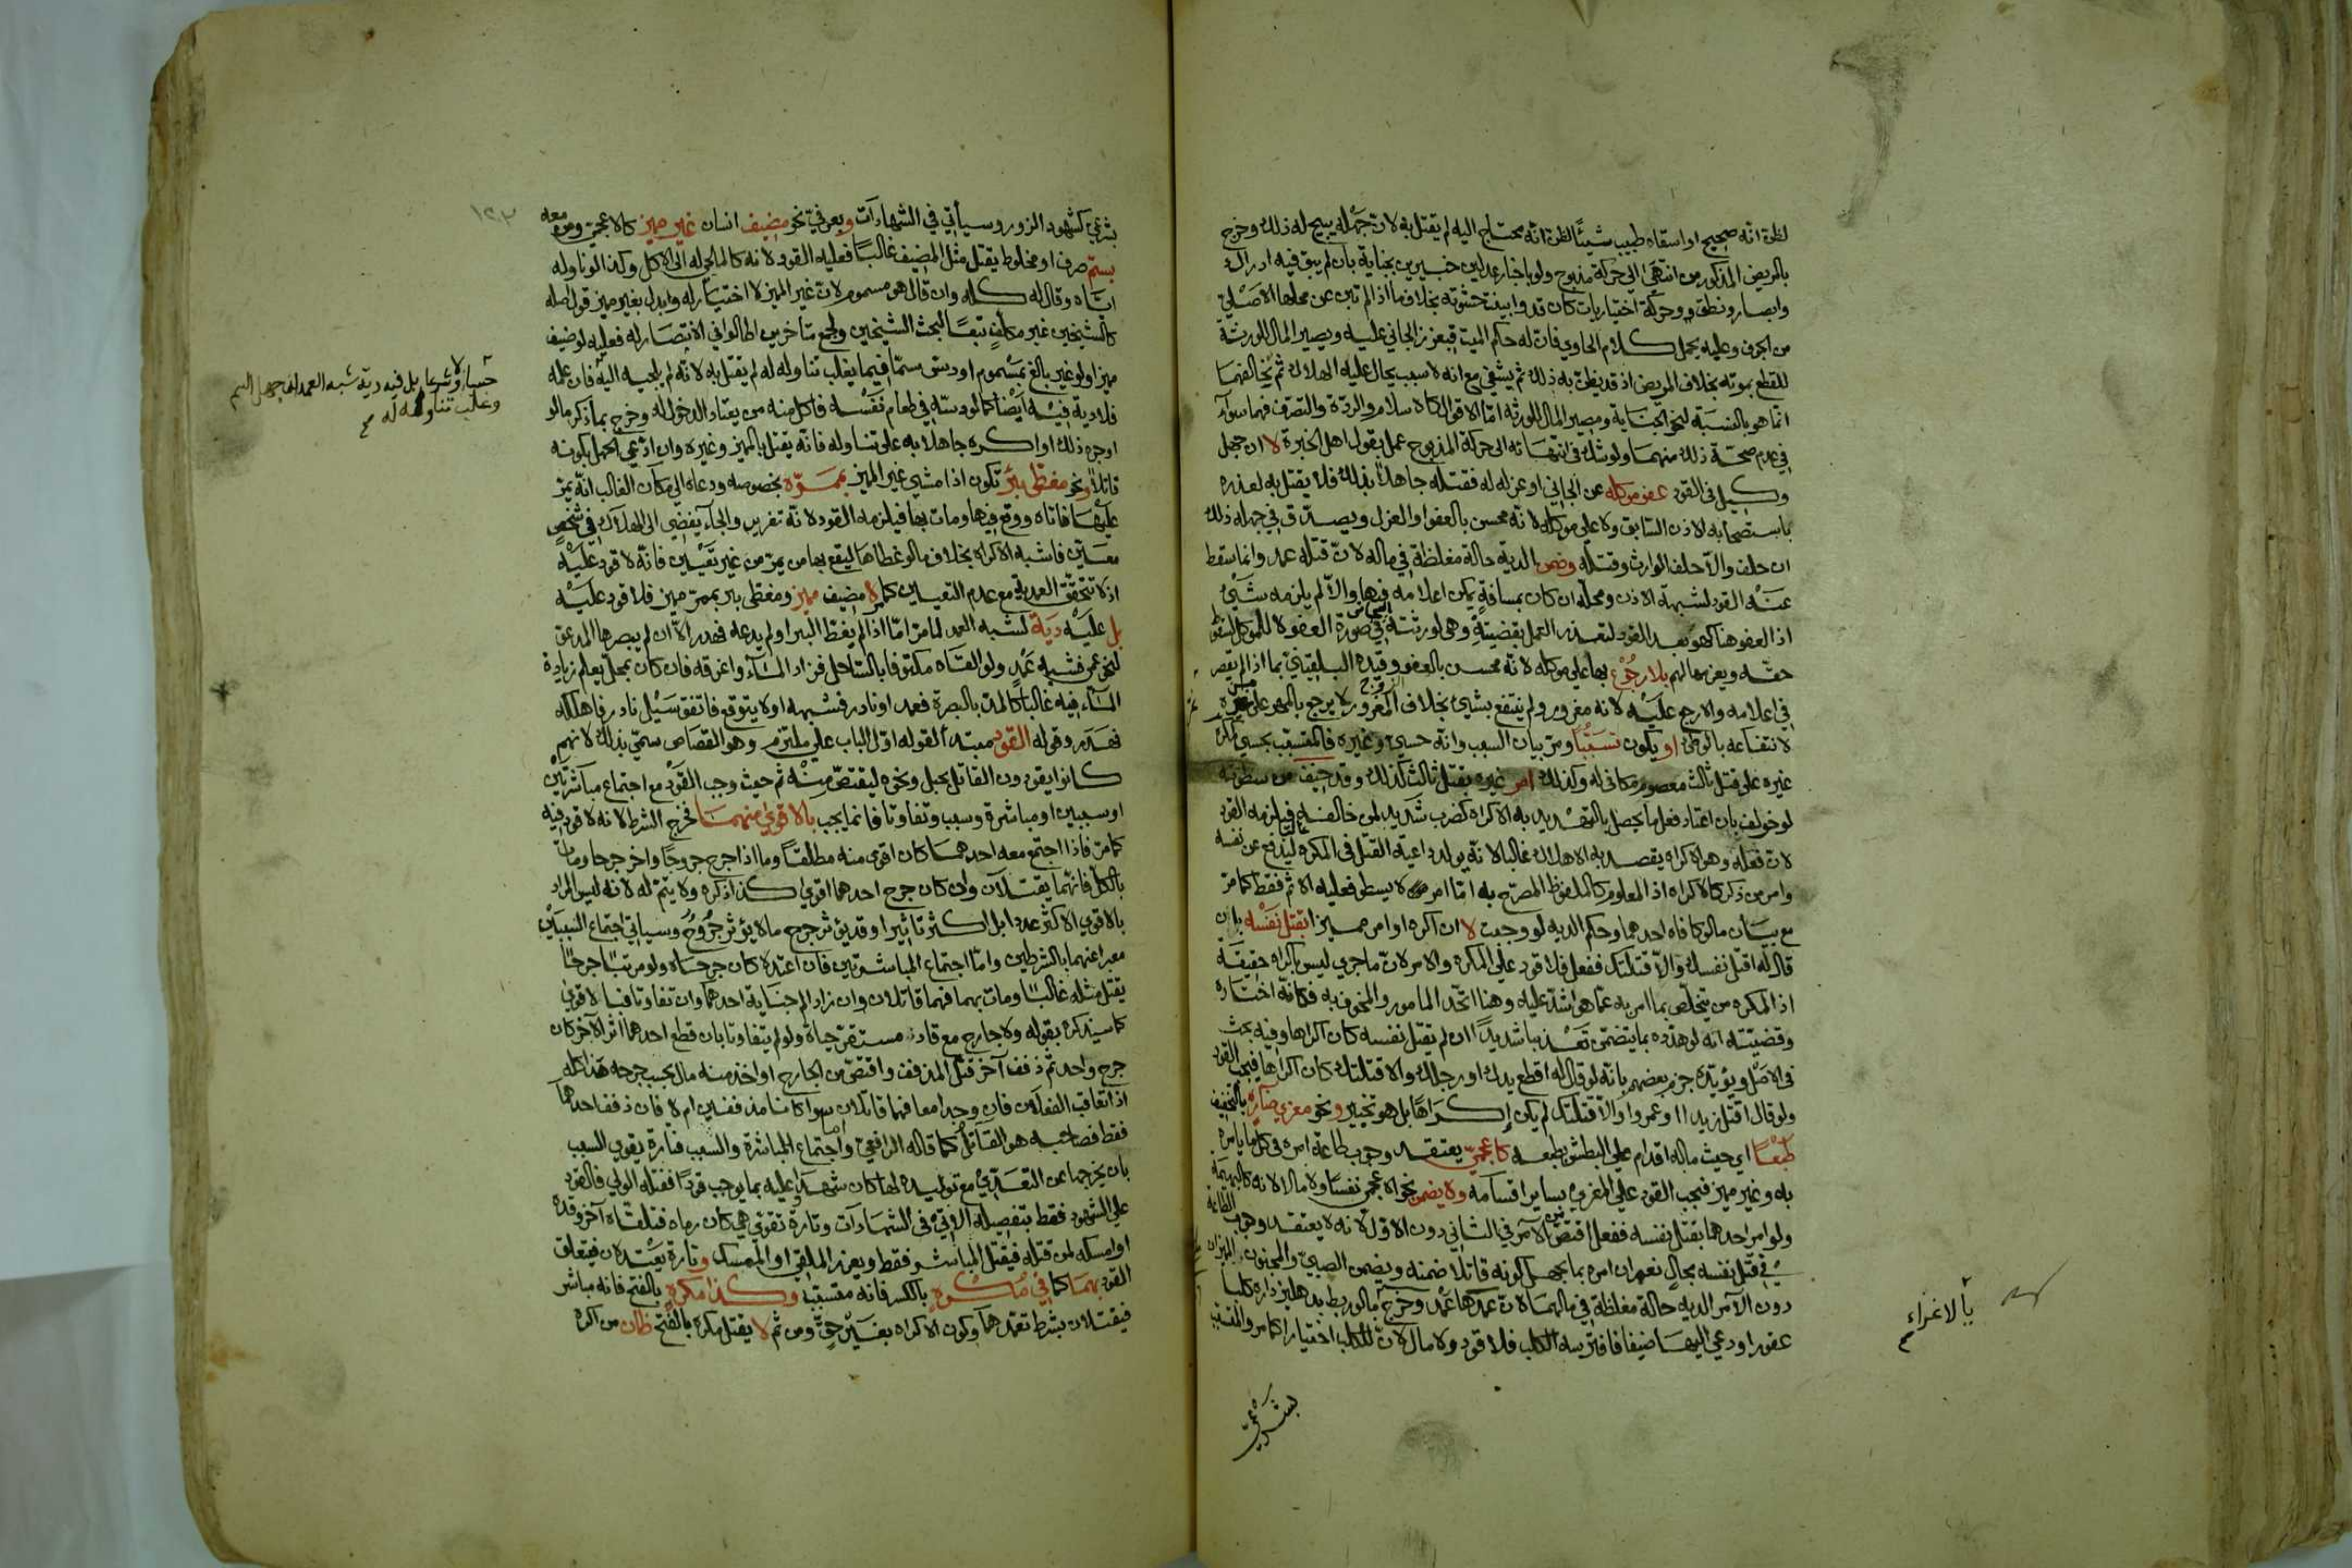 لظن انه صحيح او اسقاه طبيب شيئًا لظن انه محتاج اليه لم يقتل به لان جهله يبيح له ذلك وخرج
بالمريض المذكور من انتهى الى حركة مذبوح ولو باخبار عدلين خبيرين بجناية بان لم يبق فيه ادراك
وابصار ونطق وحركة اختياريات كان قد وابينت حشوته بخلاف ما اذا لم تبن عن محلها الاصلي
من الجوف وعليه يحمل كلام الحاوي فان له حكم الميت فيعزر الجاني عليه ويصير المال للورثة
للقطع بموته بخلاف المريض اذ قد يظن به ذلك ثم يشفى مع انه لا سبب يحال عليه الهلاك ثم تخالفهما
انما هو بالنسبة لنحو الجناية ومصير المال للورثة اما الاقوال كالاسلام والردة والتصرف فهما سواء
في عدم صحة ذلك منهما ولو شك في انتهائه الى حركة المذبوح عمل بقول اهل الخبرة لا ان جهل
وكيل في القود عفو موكله عن الجاني او عزله له فقتله جاهلا بذلك فلا يقتل به لعذره
باستصحابه الاذن السابق ولا على موكله لانه محسن بالعفو او العزل ويصدق في جهله ذلك
ان حلف والا حلف الوارث وقتله وضمن الدية حالة مغلظة في ماله لان قتله عمد وانما سقط
عنه القود لشبهة الاذن ومحله ان كان بمسافة يمكن اعلامه فيها والا لم يلزمه شيئ
اذ العفو هنا كهو بعد القود لتعذر العمل بقضيته وهي لورثة الجاني في صورة العفو لا للموكل لسقوط
حقه ويغرمها لهم بلا رجوع بها على موكله لانه محسن بالعفو وقيده البلقيني بما اذا لم يقصر
في اعلامه والا رجع عليه لانه مغرور ولم ينتفع بشيئ بخلاف الزوج المغرور لا يرجع بالمهر على من غره
لانتفاعه بالوطئ او يكون تسببًا ومر بيان السبب وانه حسي وغيره فالمتسبب بحسي كمكره
غيره على قتل ثالث معصوم مكافئ له وكذلك امر غيره بقتل ثالث كذلك وقد خيف من سطوته
لو خولف بان اعتاد فعل ما يحصل بالتهديد به الاكراه كضرب شديد لمن خالفه فيلزمه القود
لان فعله وهو الاكراه يقصد به الاهلاك غالبا لانه يولد داعية القتل في المكره ليدفع عن نفسه
وامر من ذكر كالاكراه اذ المعلوم كالملفوظ المصرح به اما امر من لا يسطو فعليه الاثم فقط كما مر
مع بيان مالو كافاه احدهما وحكم الديه لو وجبت لا ان اكره او امر مميزا بقتل نفسه بان
قال له اقتل نفسك والا قتلتك ففعل فلا قود على المكره والامر لان ما جرى ليس باكراه حقيقة
اذ المكره من يتخلص بما امر به عما هو اشد عليه وهنا اتحد المامور والمخوف به فكانه اختاره
وقضيته انه لو هدده بما يتضمن تعذيبا شديدًا ان لم يقتل نفسه كان اكراها وفيه بحث
في الاصل ويؤيده جزم بعضهم بانه لو قال له اقطع يدك او رجلك والا قتلتك كان اكراها فيجب القود
ولو قال اقتل زيدا او عمروا والا قتلتك لم يكن إكراهًا بل هو تخيير ونحو مغري ضار بالتخفيف
طبعًا اي حيث ماله اقدام على البطش بطبعه كاعجمي يعتقد وجوب طاعة امره في كل ما يامره
به وغير مميز فيجب القود على المغري بساير اقسامه ولا يضمن نحو الاعجمي نفسًا ولا مالا لانه كالبهيمة
ولو امر احدهما بقتل نفسه ففعل اقتص من الآمر في الثاني دون الاول لانه لا يعتقد وجوب الطاعة
في قتل نفسه بحال نعم ان امره بما يجهل كونه قاتلا ضمنه ويضمن الصبي والمجنون المميزان
دون الآمر الديه حالة مغلظة في مالهما لان عمدهما عمد وخرج مالو ربط بدهليز داره كلبا
عقورا ودعى اليها ضيفا فافترسه الكلب فلا قود ولا مال لان للكلب اختيارا كما مر والمتسبب
بشرعي
بالاغراء
بشرعي كشهود الزور وسيأتي في الشهادآت وبعرفي نحو مضيف انسان غير مميز كالاعجمي ومن معه
بسم صرف او مخلوط يقتل مثل المضيف غالبًا فعليه القود لانه كالملجي له الى الاكل وكذا لو ناوله
اياه وقال له كله وان قال هو مسموم لان غير المميز لا اختيار له وابدل بغير مميز قول اصله
كالشيخين غير مكلف تبعًا لبحث الشيخين ولجمع متأخرين اطالوا في الانتصار له فعليه لو ضيف
مميزا ولو غير بالغ بمسموم او دس سمًا فيما يغلب تناوله له لم يقتل به لانه لم يلجيه اليه فان علمه
فلا دية فيه ايضا كما لو دسه في طعام نفسه فاكل منه من يعتاد الدخول له وخرج بما ذكر مالو
اوجره ذلك او اكره جاهلا به على تناوله فانه يقتل بالمميز وغيره وان ادعى الجهل بكونه
قاتلا ونحو مغطي بئر تكون اذا مشى غير المميز بممره بخصوصه ودعاه الى مكان الغالب انه يمر
عليها فاتاه ووقع فيها ومات بها فيلزمه القود لانه تغرير والجآء يفضي الى الهلاك في شخص
معين فاشبه الاكراه بخلاف مالو غطاها ليقع بها من يمر من غير تعيين فانه لا قود عليه
اذ لا تتحقق العمدية مع عدم التعيين كما مر لا مضيف مميز ومغطي بئر بممر مميز فلا قود عليه
بل عليه دية لشبه العمد لما مر اما اذا لم يغط البئر او لم يدعه فهدر الا ان لم يبصرها المدعو
لنحو عمى فشبه عمد ولو القاه مكتوفا بالساحل فزاد المآء واغرقه فان كان بمحل يعلم زيادة
المآء فيه غالبا كالمد بالبصرة فعمد او نادر فشبهه او لا يتوقع فاتفق سيل نادر فاهلكه
فهدر وقوله القود مبتدأ لقوله اول الباب على ملتزم وهو القصاص سمي بذلك لانهم
كانوا يقودون القاتل بحبل ونحوه ليقتص منه ثم حيث وجب القود مع اجتماع مباشرتين
او سببين او مباشرة وسبب وتفاوتا فانما يجب بالاقوى منهما فخرج الشرط لانه لا قود فيه
كما مر فاذا اجتمع معه احدهما كان اقوى منه مطلقًا وما اذا جرح جروحا واخر جرحا ومات
بالكل فانهما يقتلان وان كان جرح احدهما اقوى كذا ذكره ولا يتم له لانه ليس المراد
بالاقوى الاكثر عددا بل اكثر تاثيرا وقد يؤثر جرح ما لا يؤثر جروح وسياتي اجتماع السببين
معبرا عنهما بالشرطين واما اجتماع المباشرتين فان اعتدلا كان جرحاه ولو مرتبًا جرحا
يقتل مثله غالبًا ومات بهما فهما قاتلان وان زاد الم جناية احدهما وان تفاوتا فبالاقوى
كما سيذكره بقوله ولا جارح مع قاد مستقر حياة ولو لم يتفاوتا بان قطع احدهما اثر الآخر كان
جرح واحد ثم ذفف آخر قتل المذفف واقتص من الجارح او اخذ منه مال بحسب جرحه هذا كله
اذا تعاقب الفعلان فان وجدا معا فهما قاتلان سوا كانا مذففين ام لا فان ذفف احدهما
فقط فصاحبه هو القاتل كما قاله الرافعي واما اجتماع المباشرة والسبب فتارة يقوى السبب
بان يخرجها عن التعدي مع توليده لها كان شهدا عليه بما يوجب قودًا فقتله الولي فالقود
على الشهود فقط بتفصيله الاتي في الشهادآت وتارة تقوى هي كان رماه فتلقاه آخر وقده
او امسكه لمن قتله فيقتل المباشر فقط ويعزر الملقي او الممسك وتارة يعتدلان فيتعلق
القود بهما كما في مكره بالكسر فانه متسبب وكذا مكره بالفتح فانه مباشر
فيقتلان بشرط تعمدهما وكون الاكراه بغير حق ومن ثم لا يقتل مكره بالفتح ظان من اكره
١٢٣
حسا ولا شرعا بل فيه دية شبه العمد ان جهل السم
وغلب تناوله له